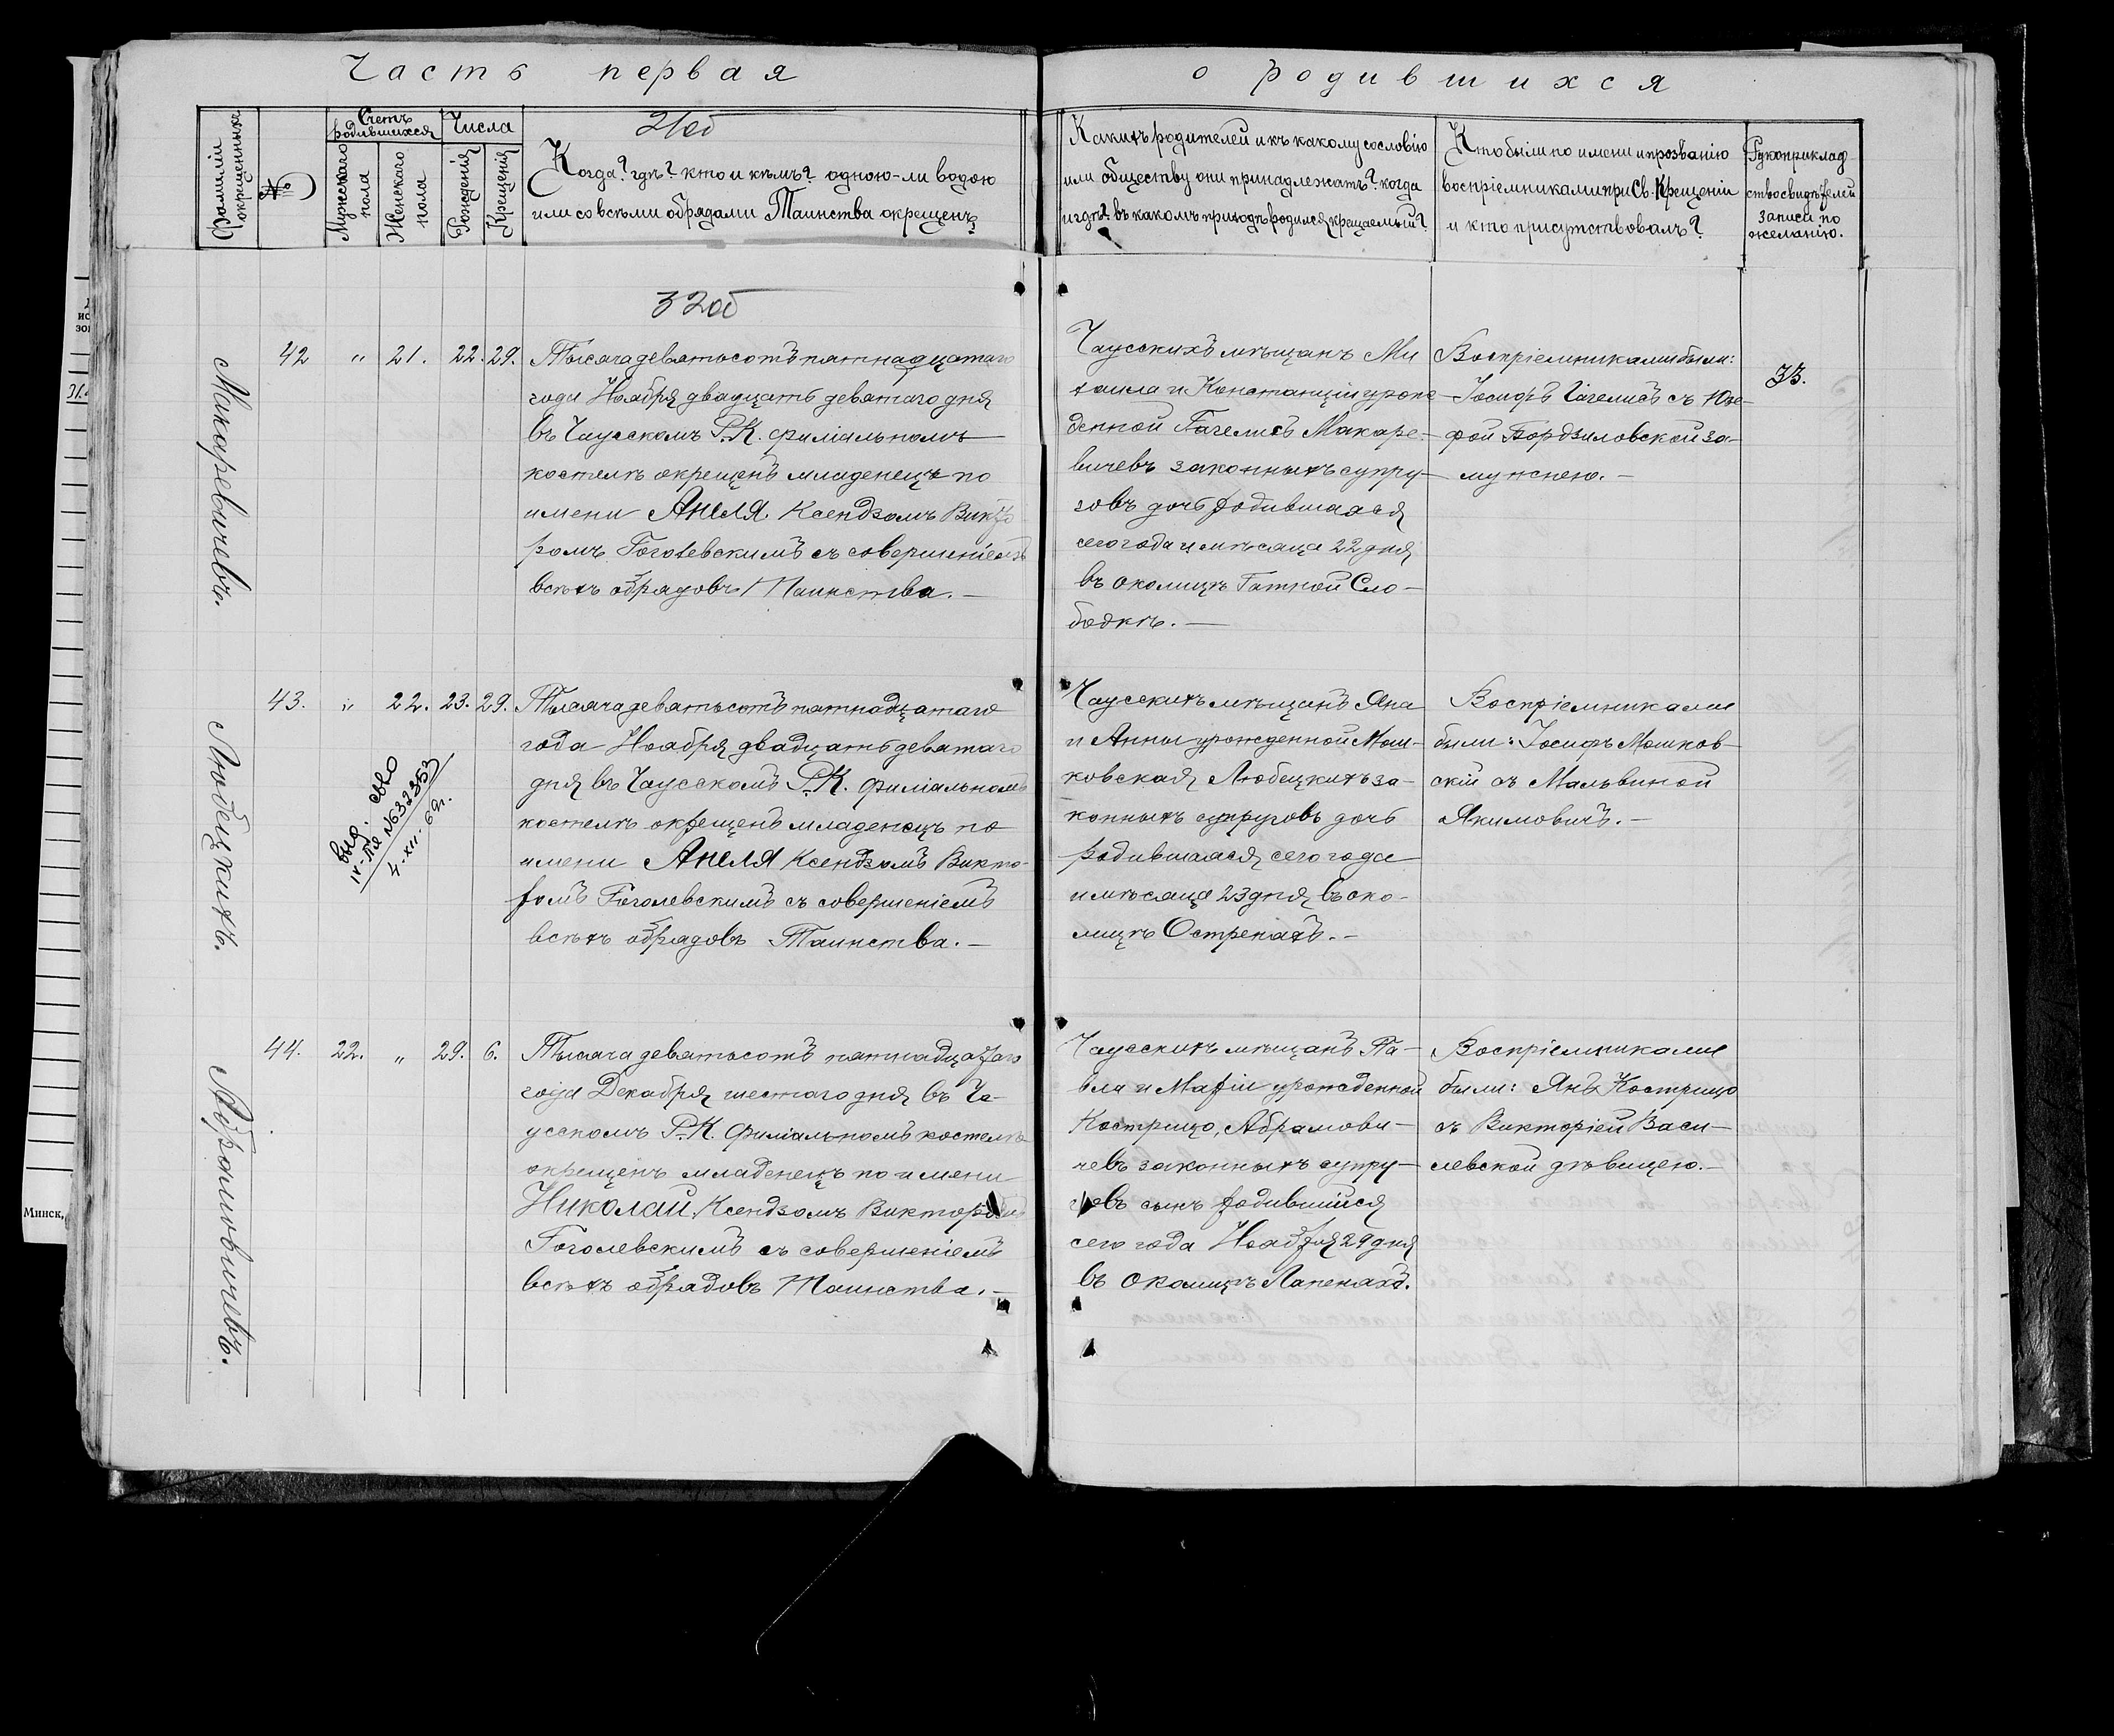 Часть первая
о родившихся
Фамиліи окрещенныхъ
№
Счетъ родившихся
Мужескаго пола
Женскаго пола
Числа
Рожденія
Крещенія
Когда? гдѣ? кто и кѣмъ? одною-ли водою
или со всѣми обрядами Таинства окрещенъ?
Какихъ родителей и къ какому сословію
или обществу они принадлежатъ? когда
и гдѣ? въ какомъ приходѣ родился крещаемый?
Кто были по имени и прозванію
воспріемниками при Св. Крещеніи
и кто присутствовалъ?
Рукоприклад-
ство свидѣтелей
записи по
желанію.
32об
Макаревичевъ.
42 " 21. 22. 29.
Тысяча девятьсотъ пятнадцатаго
года Ноября двадцать девятаго дня
въ Чаусскомъ Р.К. филіальномъ
костелѣ окрещенъ младенецъ по
имени Анеля Ксендзомъ Викто
ромъ Гоголевскимъ съ совершеніемъ
всѣхъ обрядовъ Таинства. —
Чаусскихъ мѣщанъ Ми
хаила и Констанціи урож-
денной Гагелисъ Макаре-
вичевъ законныхъ супру-
говъ дочь родившаяся
сего года и мѣсяца 22 дня
въ околицѣ Гатной Сло-
бодкѣ. —
Воспріемниками были:
Іосифъ Гагелисъ съ Юзе-
фой Бордзиловской за-
мужнею. —
33.
Любецкихъ.
43. " 22. 23. 29.
Тысяча девятьсотъ пятнадцатаго
года Ноября двадцать девятаго
дня въ Чаусскомъ Р.К. филіальномъ
костелѣ окрещенъ младенецъ по
имени Анеля Ксендзомъ Викто-
ромъ Гоголевскимъ съ совершеніемъ
всѣхъ обрядовъ Таинства. —
выд. св-во
IV-ПЯ №632353
4. XII. 69г.
Чаусскихъ мѣщанъ Яна
и Анны урожденной Мош-
ковская Любецкихъ за-
конныхъ супруговъ дочь
родившаяся сего года
и мѣсяца 23 дня въ око-
лицѣ Острекахъ. —
Воспріемниками
были: Іосифъ Мошков-
скій съ Мальвиной
Якимовичъ. —
Абрамовичевъ.
44. 22. " 29. 6.
Тысяча девятьсотъ пятнадцатаго
года Декабря шестаго дня въ Ча-
усскомъ Р.К. Филіальномъ костелѣ
окрещенъ младенецъ по имени
Николай Ксендзомъ Викторомъ
Гоголевскимъ съ совершеніемъ
всѣхъ обрядовъ Таинства. —
Чаусскихъ мѣщанъ Па-
вла и Маріи урожденной
Кострицо, Абрамови-
чевъ законныхъ супру-
говъ сынъ родившійся
сего года Ноября 29 дня
въ околицѣ Лапенахъ.
Воспріемниками
были: Янъ Кострицо
съ Викторіей Васи-
левской дѣвицею. —
Минск,